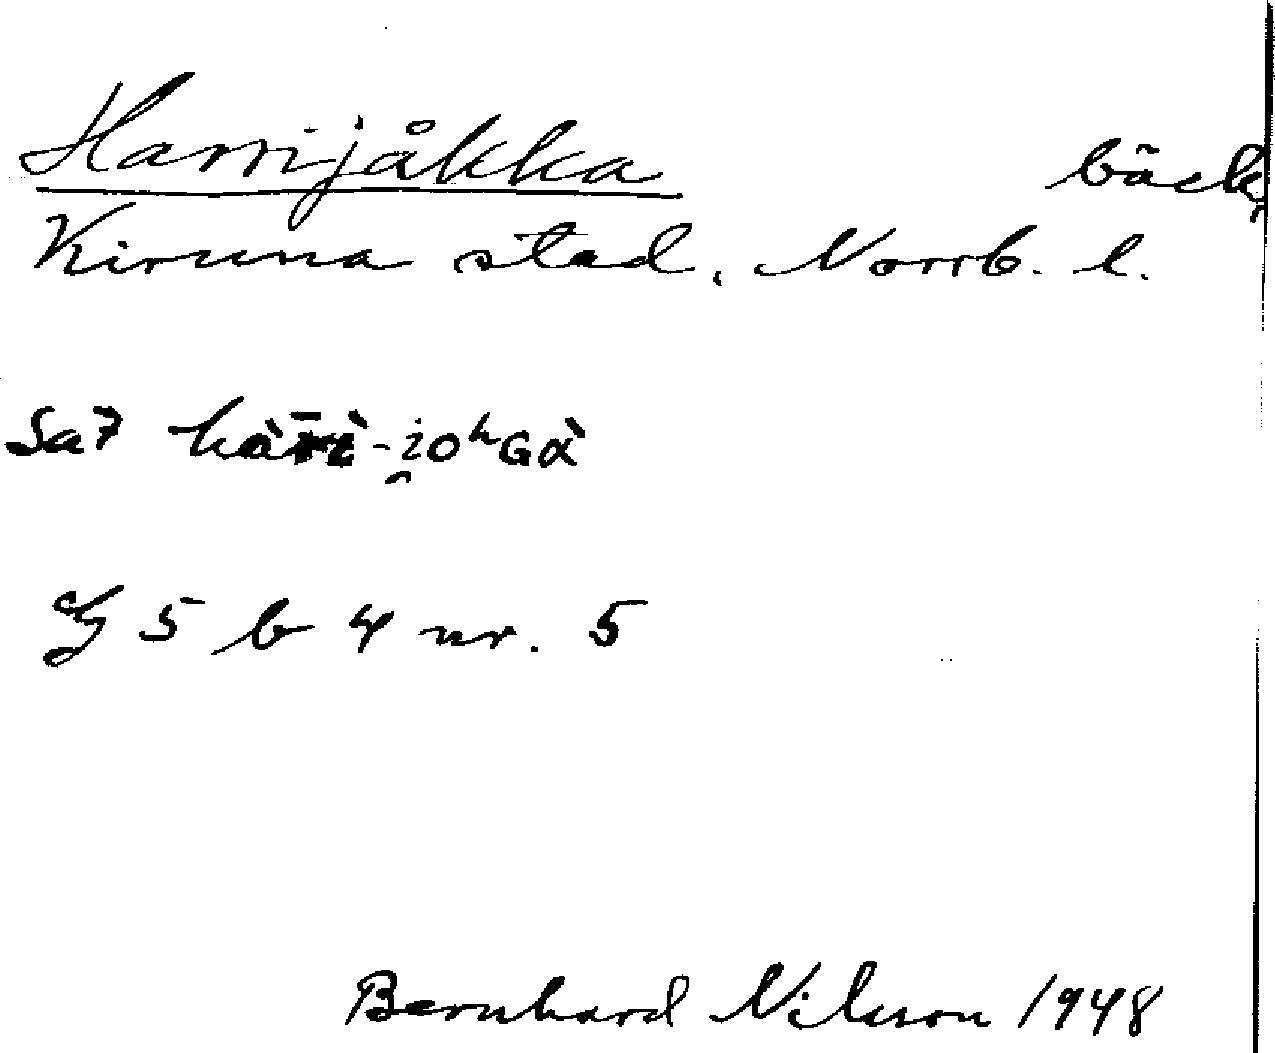 Harrijåkka bäck
Kiruna stad, Norrb. l.
Sa7 hàr̄ì-i̯oʰGɑ̀
G 5 b 4 nr. 5
Bernhard Nilsson 1948